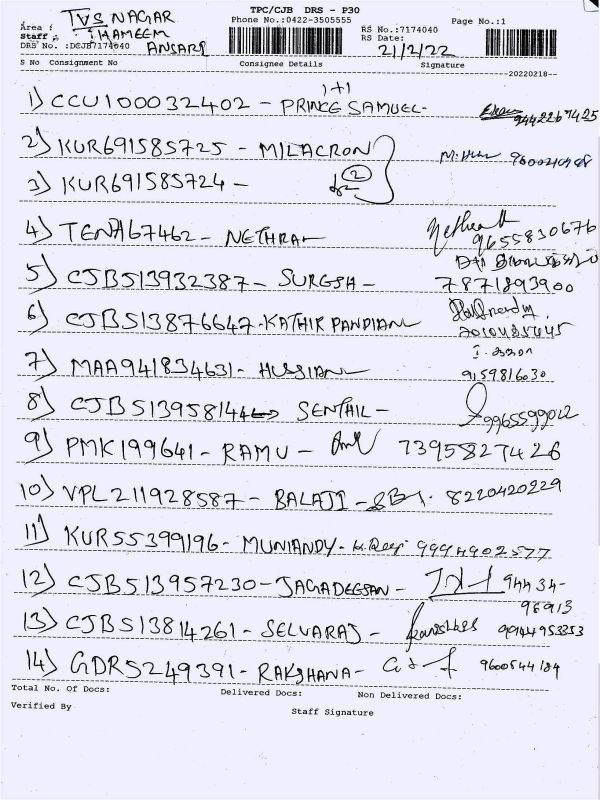 TPC/CJB DRS - P30
Phone No.:0422-3505555
Page No.:1
Area : TVS NAGAR
RS No.:7174040
Staff : THAMEEM ANSARI
RS Date: 21/2/22
DRS No. :DCJB7174040
S No Consignment No Consignee Details Signature
20220218
1) CCU100032402 - PRINCE SAMUEL - 1+1 9442267425
2) KUR691585725 - MILACRON
3) KUR691585724 - 2
4) TEN467462 - NETHRA 9655830676
5) CJB513932387 - SURESH - 7871893900
6) CJB513876647 - KATHIR PANDIAN
7) MAA941834631 - HUSSIAN 9159816030
8) CJB513958144 - SENTHIL - 9965599022
9) PMK199641 - RAMU - 7395827426
10) VPL211928587 - BALAJI - 8220420229
11) KUR55399196 - MUNIANDY - 9994902577
12) CJB513957230 - JAGADEESAN - 94434-96913
13) CJB513814261 - SELVARAJ - 9944953353
14) GDR5249391 - RAKSHANA - 9600544184
Total No. Of Docs: Delivered Docs: Non Delivered Docs:
Verified By Staff Signature